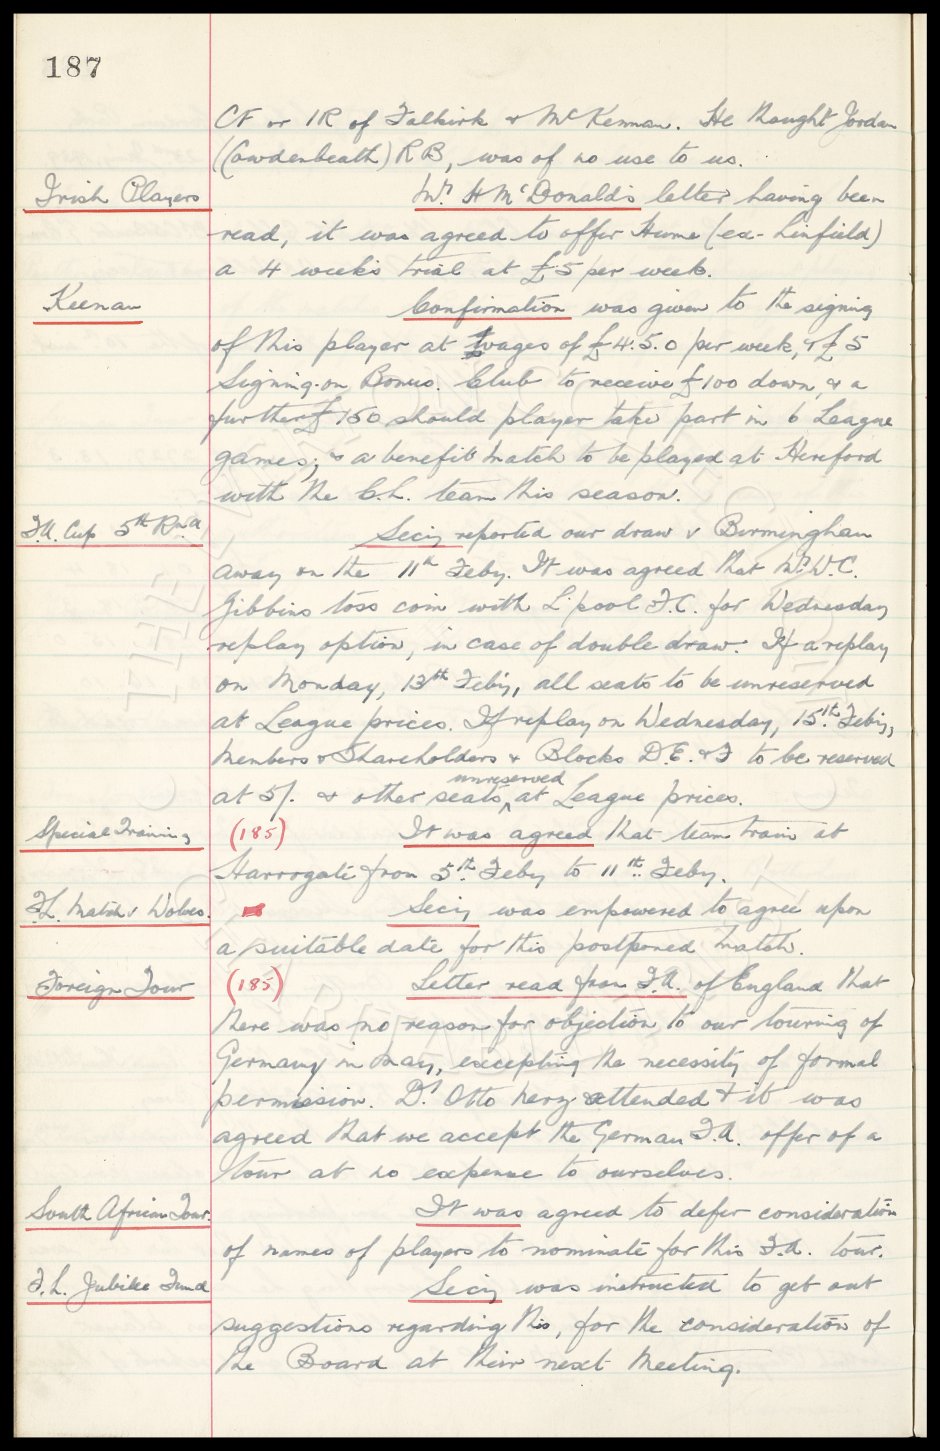 187
CF or IR of Falkirk & McKennan. He thought Jordan
(Cowdenbeath) RB, was of no use to us.
Irish Players
Mr. H McDonald's letter having been
read, it was agreed to offer Hume (ex-Linfield)
a 4 week's trial at £5 per week.
Keenan
Confirmation was given to the signing
of this player at wages of £4.5.0 per week, & £5
Signing-on Bonus. Club to receive £100 down, & a
further £150 should player take part in 6 League
games; & a benefit match to be played at Hereford
with the C.L. team this season.
F.A. Cup 5th Rnd
Secy reported our draw v Birmingham
away on the 11th Feby. It was agreed that Mr. W.C.
Gibbins toss coin with L'pool F.C. for Wednesday
replay option, in case of double draw. If a replay
on Monday, 13th Feby, all seats to be unreserved
at League prices. If replay on Wednesday, 15th Feby,
Members & Shareholders & Blocks D.E. & F to be reserved
at 5/. & other seats, unreserved at League prices.
Special Training
(185)
It was agreed that team train at
Harrogate from 5th Feby to 11th Feby.
F.L. Match v Wolves.
Secy was empowered to agree upon
a suitable date for this postponed match.
Foreign Tour
(185)
Letter read from F.A. of England that
there was no reason for objection to our touring of
Germany in May, excepting the necessity of formal
permission. Dr. Otto Nerz attended & it was
agreed that we accept the German F.A. offer of a
tour at no expense to ourselves.
South African Tour.
It was agreed to defer consideration
of names of players to nominate for this F.A. tour.
F.L. Jubilee Fund
Secy was instructed to get out
suggestions regarding this, for the consideration of
the Board at their next Meeting.